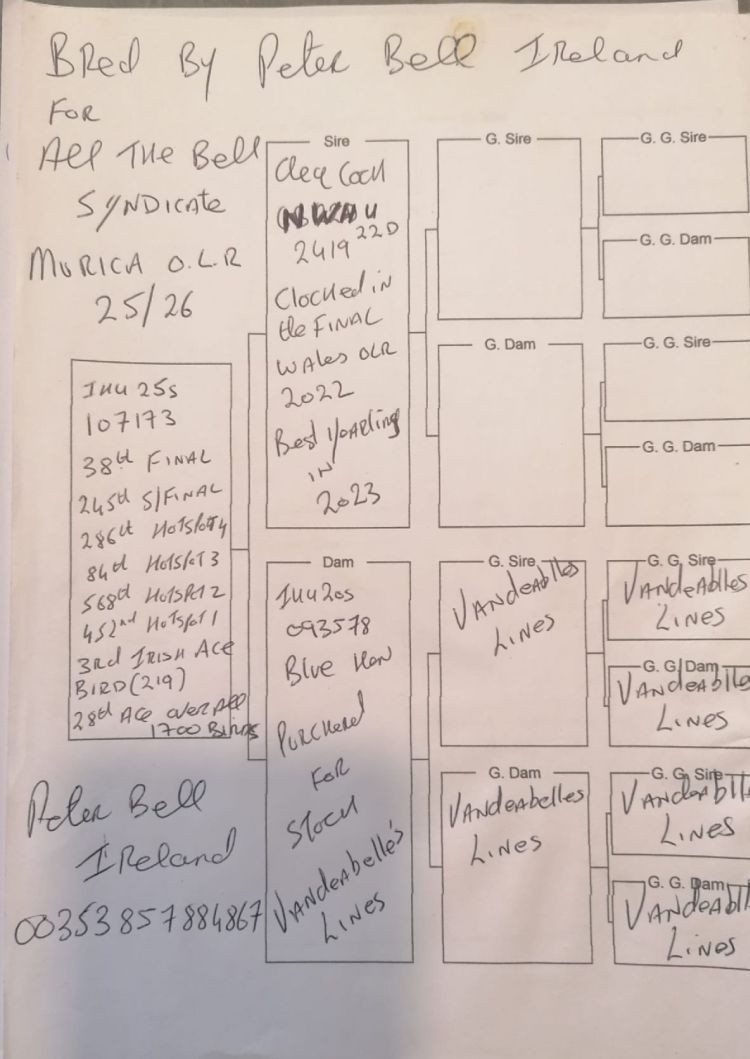 BRed By Peter Bell IReland
FOR
All THE Bell
SYNDICATE
MURICA O.L.R
25/26
IHU 25s
107173
38th FINAL
245th S/FINAL
286th HOTSPOT4
84th HOTSPOT3
568th HOTSPOT 2
452nd HOTSPOT1
3Rd IRISH ACE
BIRD (219)
28th ACE overAll
1700 BIRDS
Peter Bell
IReland
00353857884867
Sire
Cleq Cock
2419 22D
Clocked in
the FINAL
WALes OLR
2022
Best YOARling
IN
2023
Dam
IHU 20s
093578
Blue Hen
PURCHered
FOR
STOCK
VANDeAbelle's
LINES
G. Sire
VANDeAblles
LINES
G. Dam
VANDeAbelles
LINES
G. Sire
G. Dam
G. G. Sire
G. G. Dam
G. G. Sire
G. G. Dam
G. G. Sire
VANDeAblles
LINES
G. G. Dam
VANDeAblles
LINES
G. G. Sire
VANDeAbll
LINES
G. G. Dam
VANDeAbll
LINES